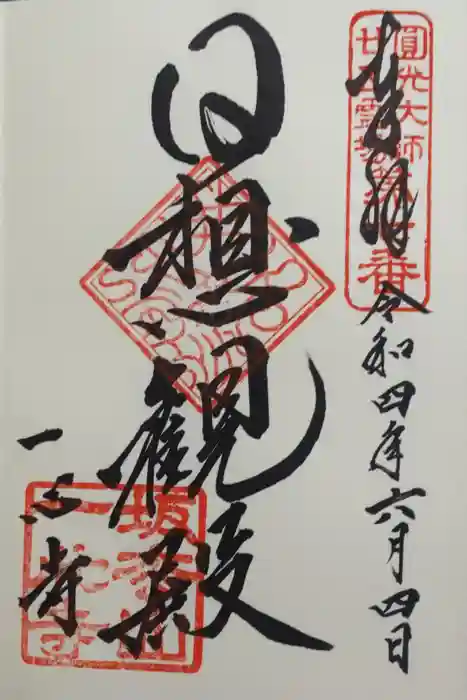 奉拝
令和四年六月四日
圓光大師
廿五霊場第七番
日想観殿
一心寺
坂松山
一心寺